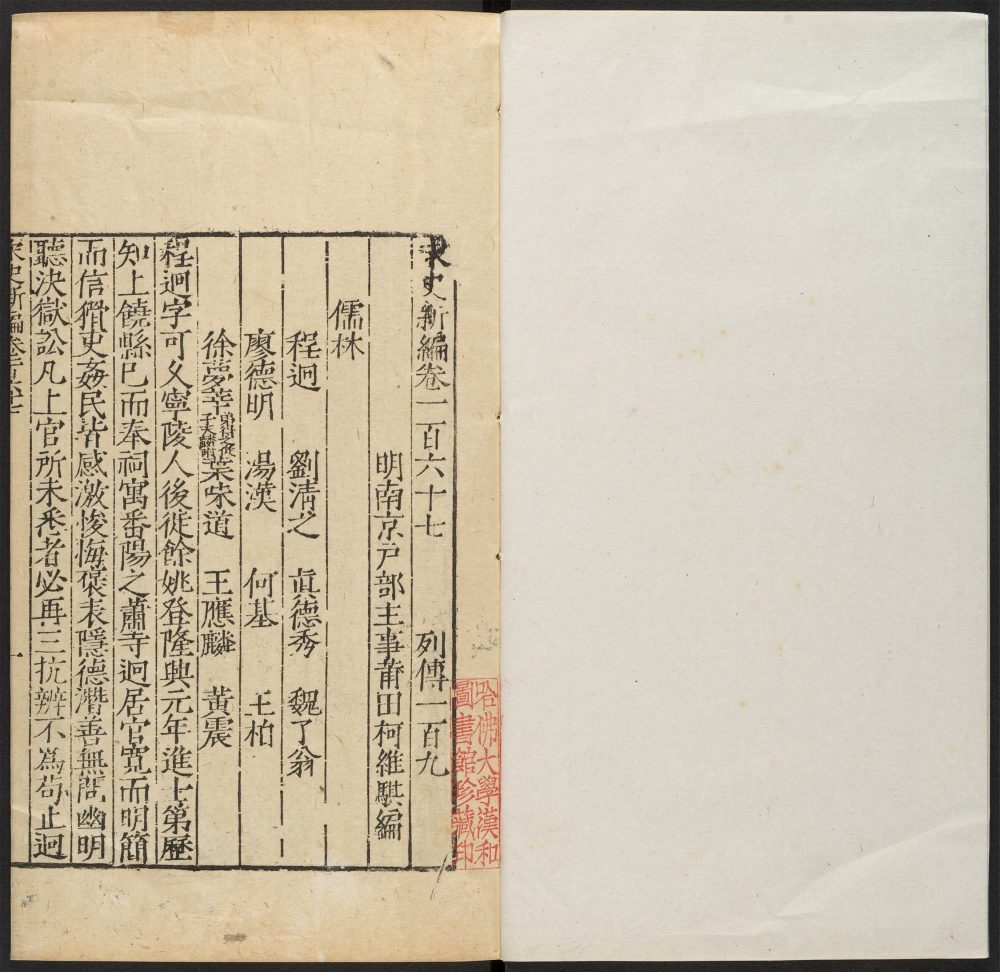 宋史新編卷一百六十七 列傳一百九
明南京戶部主事莆田柯維騏編
儒林
程迥 劉清之 眞德秀 魏了翁
廖德明 湯漢 何基 王柏
徐夢莘 葉味道 王應麟 黃震
程迥字可久寧陵人後徙餘姚登隆興元年進士第歷
知上饒縣已而奉祠寓番陽之蕭寺迥居官寬而明簡
而信猾吏姦民皆感激悛悔襃表隱德潛善無間幽明
聽決獄訟凡上官所未悉者必再三抗辨不爲苟止迥
宋史新編卷一百六十七 一
哈佛大學漢和
圖書館珍藏印